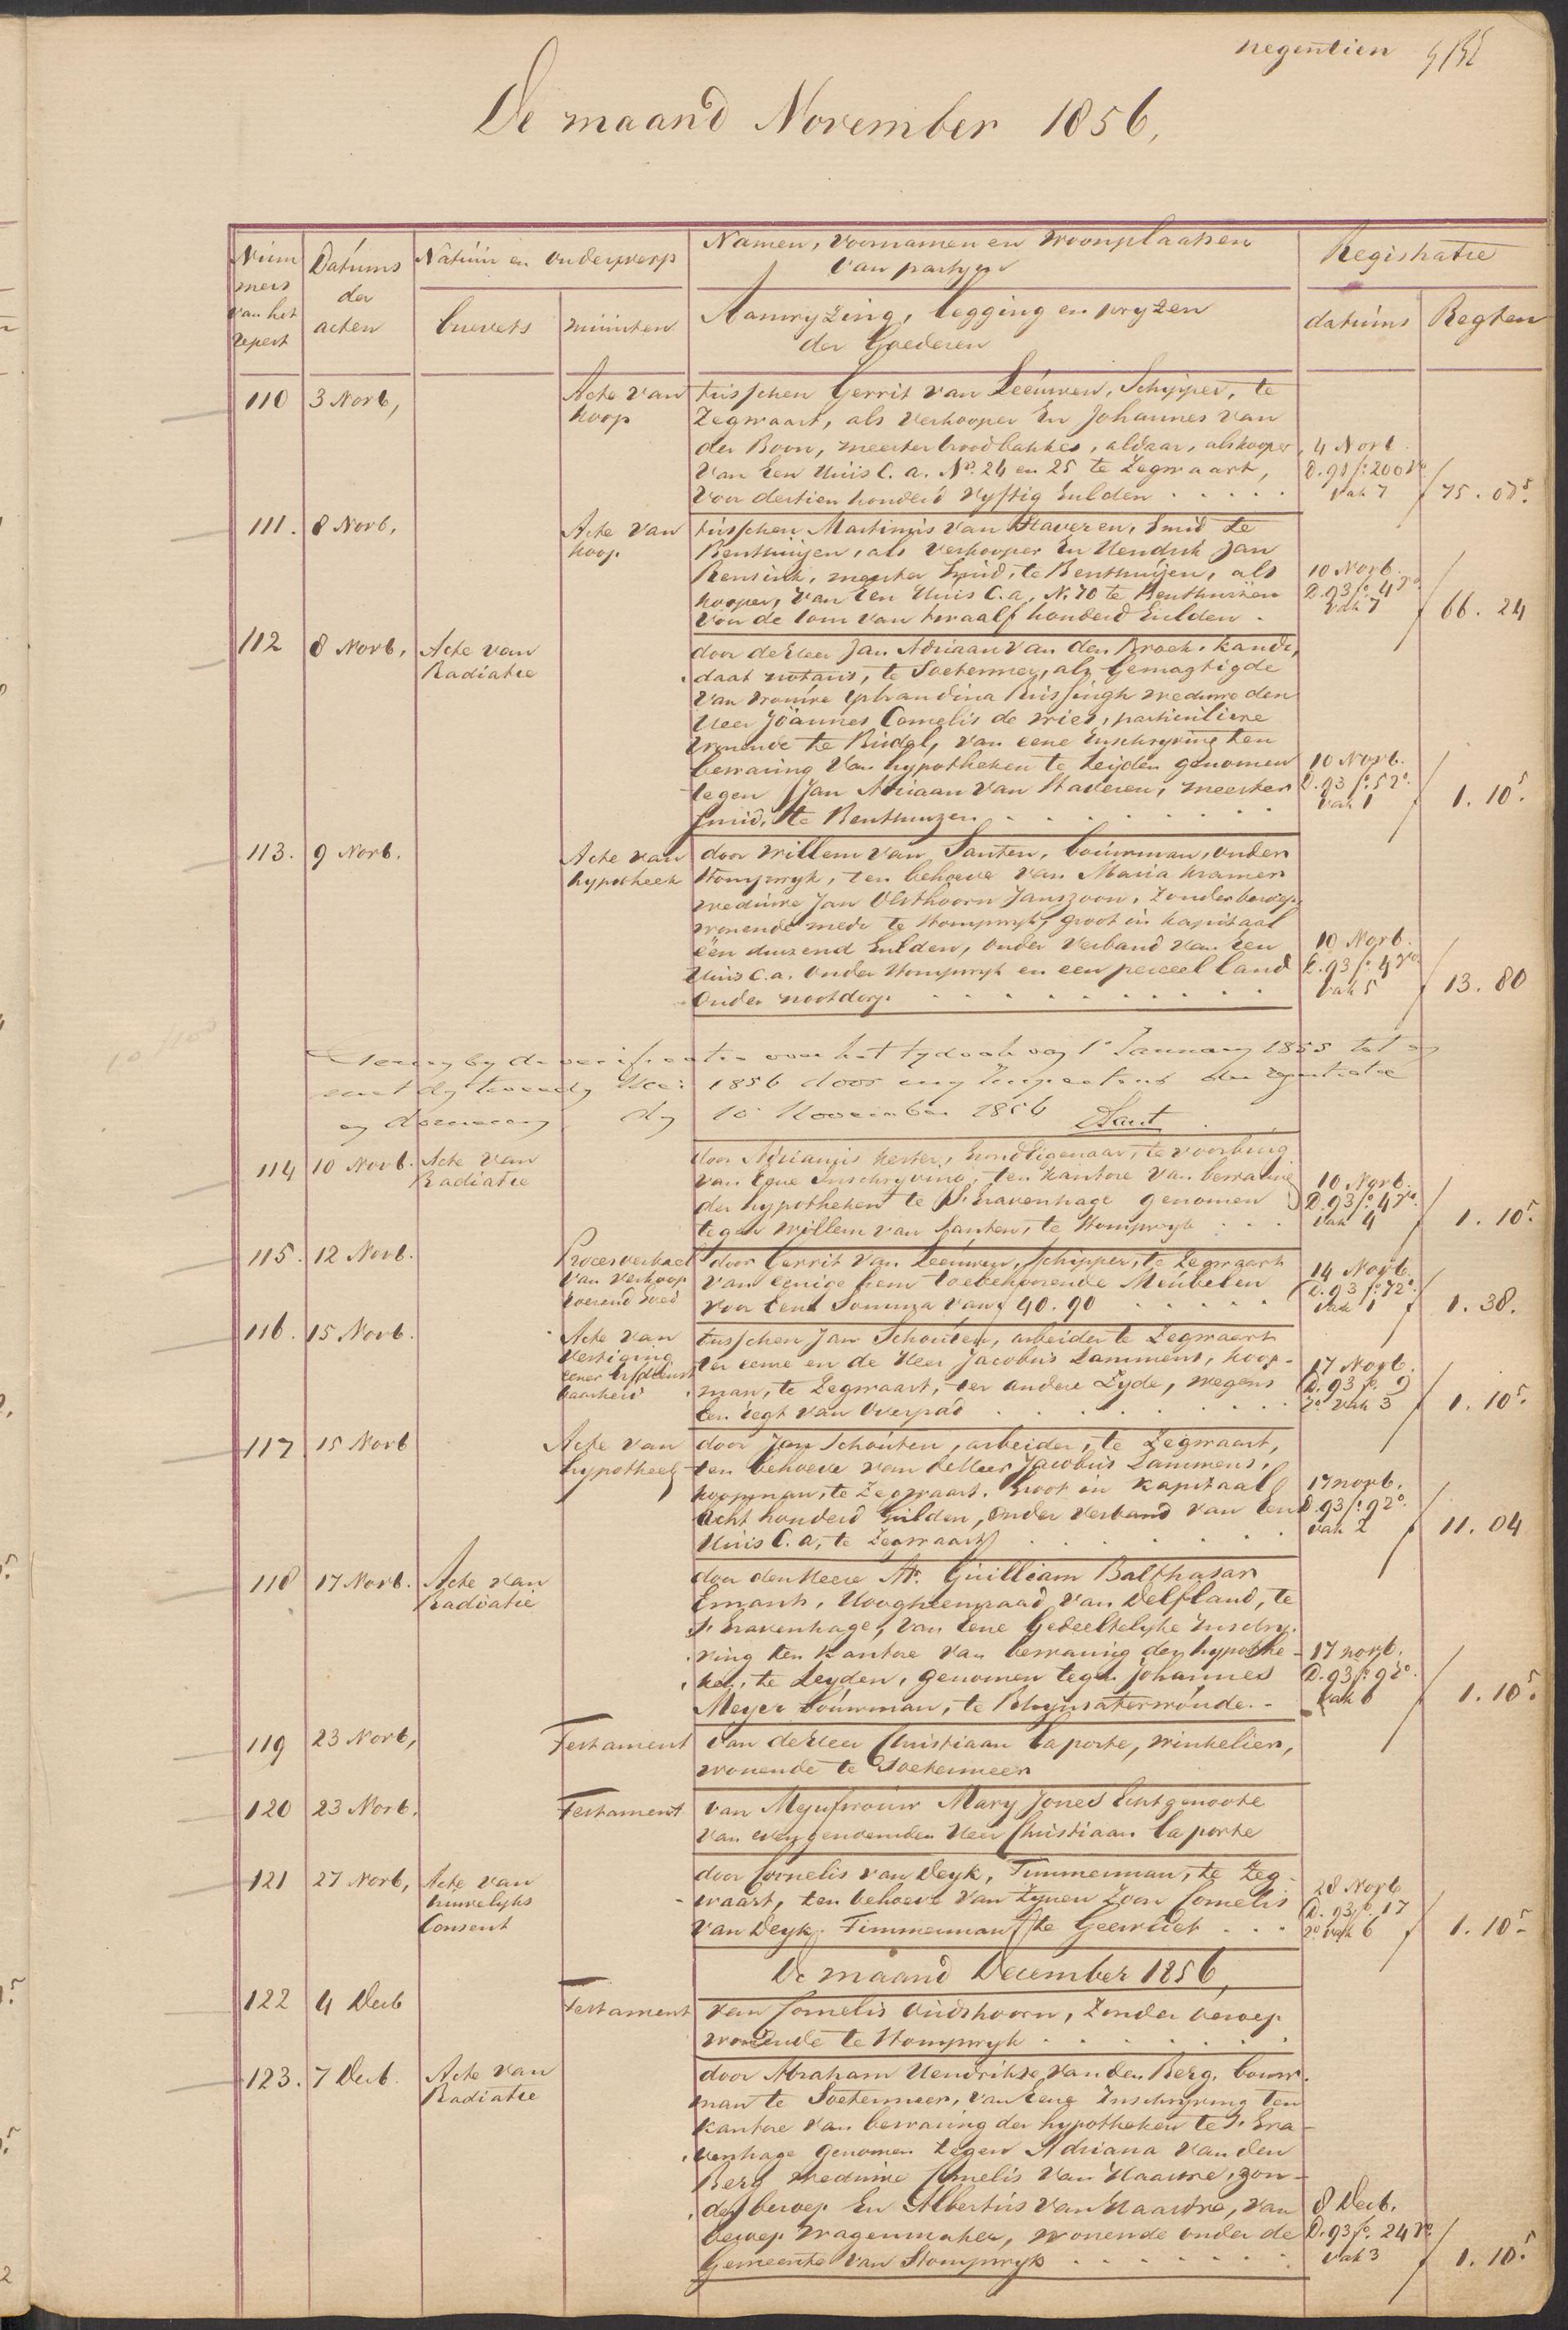 negentien
De maand November 1856,
Num
mers
van het
repert
Datums
der
acten
Natuur en onderwerp
brevets
minuten
Namen, voornamen en woonplaatsen
van partyen
Aanwyzing, legging en pryzen
der Goederen
Registratie
datums
Regten
110 3 Novb,
Acte van
koop
tusschen Gerrit van Leeuwen, Schipper, te
Zegwaart, als verkooper En Johannes van
der Boon, meester broodbakker, aldaar, als kooper
van Een Huis C. a. No. 24 en 25 te Zegwaart,
voor dertien honderd vyftig Gulden . . . . .
4 Novb.
D. 91 fo. 200 vo
vak 7
75.
111. 8 Novb,
Acte van
koop
tusschen Martinus van Staveren, Smid te
Benthuijen, als verkooper En Hendrik Jan
Rensink, meester Smid, te Benthuijen, als
kooper, van Een Huis C. a, N. 70 te Benthuizen
voor de som van twaalf honderd Gulden .
10 Novb.
D. 93 fo. 4 ro
vak 7
66. 24
112 8 Novb, Acte van
Radiatie
door de Heer Jan Adriaan van den Broek, kandi,
daat notaris, te Soetermeer, als Gemagtigde
van vrouwe Ysbrandina weduwe den
Heer Jöannes Cornelis de Vries, particuliere
wonende te Budel, van eene Inschryving ten
bewaring van hypotheken te Leijden genomen
tegen Jan Adriaan van Staveren, meester
smid, te Benthuizen . . . . . . . .
10 Novb.
D. 93 fo. 5 ro.
vak 1
1. 10 5.
113. 9 Novb.
Acte van
hypotheek
door Willem van Santen, bouwman, onder
Stompwyk, ten behoeve van Maria Kramer
weduwe Jan Olsthoorn Janszoon, zonder beroep,
wonende mede te Stompwyk, groot in kapitaal
een duizend Gulden, onder verband van Een
Huis C. a. onder Stompwyk en een perceel land
onder nootdorp . . . . . . . . . .
10 Novb.
D. 93 fo. 4 ro.
vak 5
13. 80
by de verificatie over het tydvak van 1e January 1855 tot en
met den tweeden Mei 1856 door my Inspecteur der registratie
en domeinen den 10 November 1856
114 10 Novb. Acte van
Radiatie
door Adrianus Kester, Grondeigenaar, te voorburg
van Eene Inschryving, ten kantore van bewaring
der hypotheken te s'Gravenhage genomen
tegen Willem van Santen, te Stompwyk . . .
10 Novb.
D. 93 fo. 4 ro.
vak 4
1. 10 5.
115. 12 Novb.
Procesverbaal
van verkoop
roerend goed
door Gerrit van Leeuwen, Schipper, te Zegwaart
van eenige hem toebehoorende Meubelen
voor Eene Somma van f 40. 90 . . . . .
14 Novb.
D. 93 fo. 7 ro.
vak 1
1. 38.
116. 15 Novb.
Acte van
vestiging
eener Erfdienst
baarheid
tusschen Jan Schouten, arbeider te Zegwaart
ter eenre en de Heer Jacobus Lammens, koop-
man, te Zegwaart, ter andere Zyde, wegens
Een regt van Overpad . . . . . . . .
17 Novb.
D. 93 fo. 9
ro. vak 3
1. 10 5.
117 15 Novb
Acte van
hypotheek
door Jan Schouten, arbeider, te Zegwaart,
ten behoeve van de Heer Jacobus Lammens,
koopman, te Zegwaart. Groot in kapitaal
acht honderd Gulden, onder verband van Een
Huis C. a, te Zegwaart . . . . . .
17 novb.
D. 93 fo. 9 ro.
vak 2
11. 04
118 17 Novb. Acte van
Radiatie
door den Heere Mr. Guilliam Balthasar
Emants, Hoogheemraad van Delfland, te
s'Gravenhage, van Eene Gedeeltelyke Inschry.
ving ten kantore van bewaring der hypothe-
ken, te Leyden, genomen tegen Johannes
Meyer bouwman, te Rhynsaterwoude. -
17 novb.
D. 93 fo. 9 ro.
vak 6
1. 10 5.
119 23 Novb,
Testament
van de Heer Christiaan Laporte, winkelier,
wonende te Soetermeer
120 23 Novb.
Testament
van Mejufvrouw Mary Jones Echtgenoote
van evengenoemden Heer Christiaan Laporte
121 27 Novb, Acte van
huwelyks
Consent
door Cornelis van Deyk, Timmerman, te Zeg-
waart, ten behoeve van Zynen Zoon Cornelis
van Deyk. Timmerman te Geervliet . . .
28 Novb
D. 93 fo. 17
ro vak 6
1. 10 5.
De maand December 1856,
122 4 Decb
Testament
van Cornelis Oudshoorn, Zonder beroep
wonende te Stompwyk . . . . . . .
123. 7 Decb. Acte van
Radiatie
door Abraham Hendrikse van den Berg, bouw.
man te Soetermeer, van Eene Inschryving ten
kantore van bewaring der hypotheken te s'Gra-
venhage genomen tegen Adriana van den
Berg weduwe Cornelis van Haastre, zon-
der beroep En Albertus van Haastre, van
beroep Wagenmaker, wonende onder de
Gemeente van Stompwyk . . . . . . .
8 Decb.
D. 93 fo. 24 ro.
vak 3
1. 10 5.